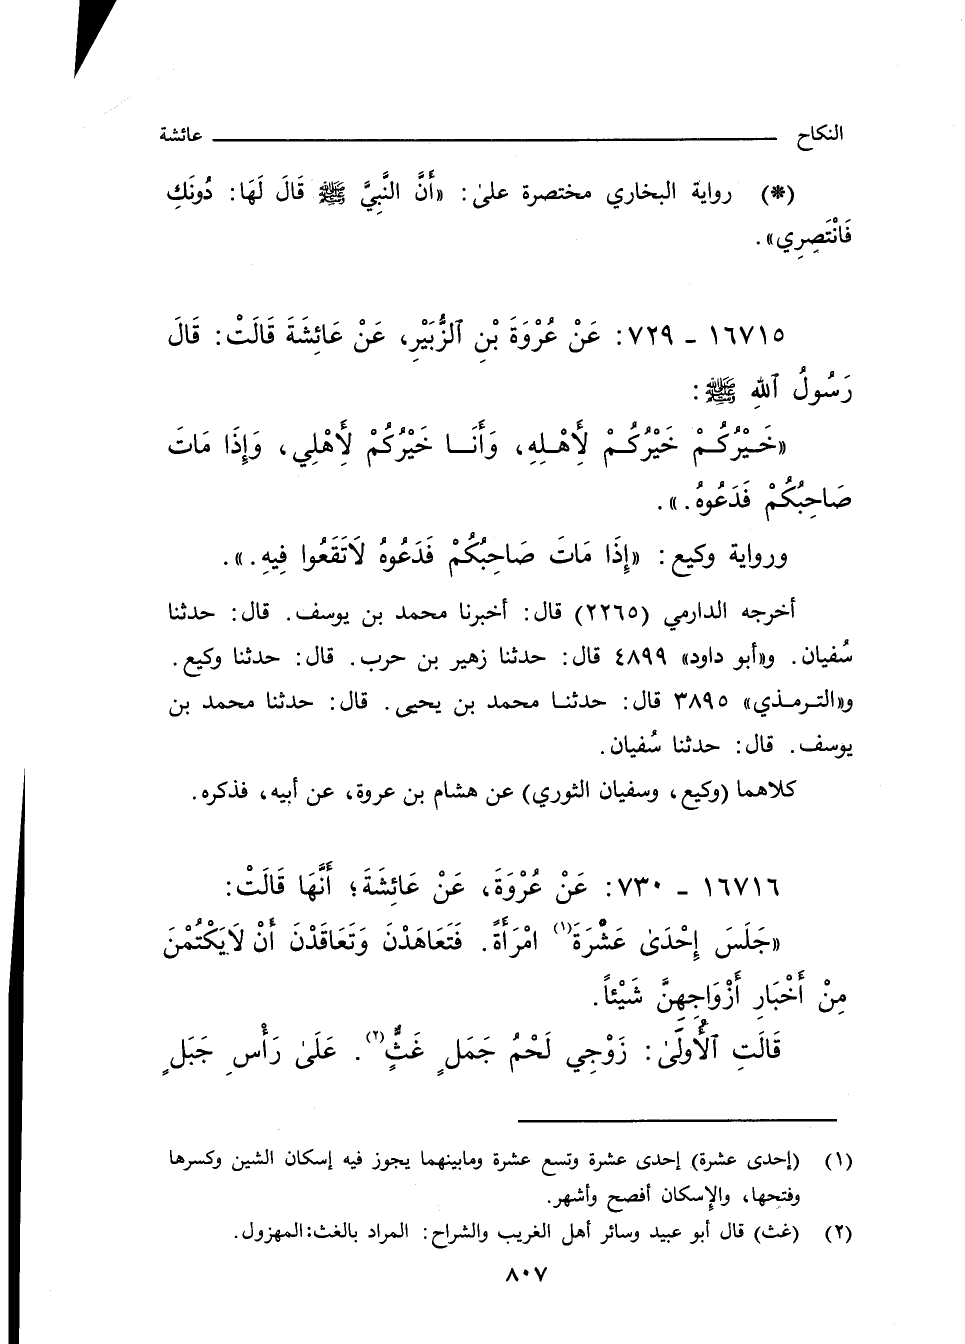 النكاح عائشة
(*) رواية البخاري مختصرة علىٰ: «أَنَّ النَّبِيَّ ﷺ قَالَ لَهَا: دُونَكِ
فَانْتَصِرِي».
١٦٧١٥ ـ ٧٢٩: عَنْ عُرْوَةَ بْنِ ٱلزُّبَيْرِ، عَنْ عَائِشَةَ قَالَتْ: قَالَ
رَسُولُ ٱللهِ ﷺ:
«خَيْرُكُمْ خَيْرُكُمْ لِأَهْلِهِ، وَأَنَا خَيْرُكُمْ لِأَهْلِي، وَإِذَا مَاتَ
صَاحِبُكُمْ فَدَعُوهُ.».
ورواية وكيع: «إِذَا مَاتَ صَاحِبُكُمْ فَدَعُوهُ لَاتَقَعُوا فِيهِ.».
أخرجه الدارمي (٢٢٦٥) قال: أخبرنا محمد بن يوسف. قال: حدثنا
سُفيان. و«أبو داود» ٤٨٩٩ قال: حدثنا زهير بن حرب. قال: حدثنا وكيع.
و«الترمذي» ٣٨٩٥ قال: حدثنا محمد بن يحيى. قال: حدثنا محمد بن
يوسف. قال: حدثنا سُفيان.
كلاهما (وكيع، وسفيان الثوري) عن هشام بن عروة، عن أبيه، فذكره.
١٦٧١٦ ـ ٧٣٠: عَنْ عُرْوَةَ، عَنْ عَائِشَةَ؛ أَنَّهَا قَالَتْ:
«جَلَسَ إِحْدَىٰ عَشْرَةَ(١) امْرَأَةً. فَتَعَاهَدْنَ وَتَعَاقَدْنَ أَنْ لَايَكْتُمْنَ
مِنْ أَخْبَارِ أَزْوَاجِهِنَّ شَيْئاً.
قَالَتِ ٱلْأُولَىٰ: زَوْجِي لَحْمُ جَمَلٍ غَثٍّ(٢). عَلَىٰ رَأْسِ جَبَلٍ
(١) (إحدى عشرة) إحدى عشرة وتسع عشرة ومابينهما يجوز فيه إسكان الشين وكسرها
وفتحها، والإسكان أفصح وأشهر.
(٢) (غث) قال أبو عبيد وسائر أهل الغريب والشراح: المراد بالغث: المهزول.
٨٠٧